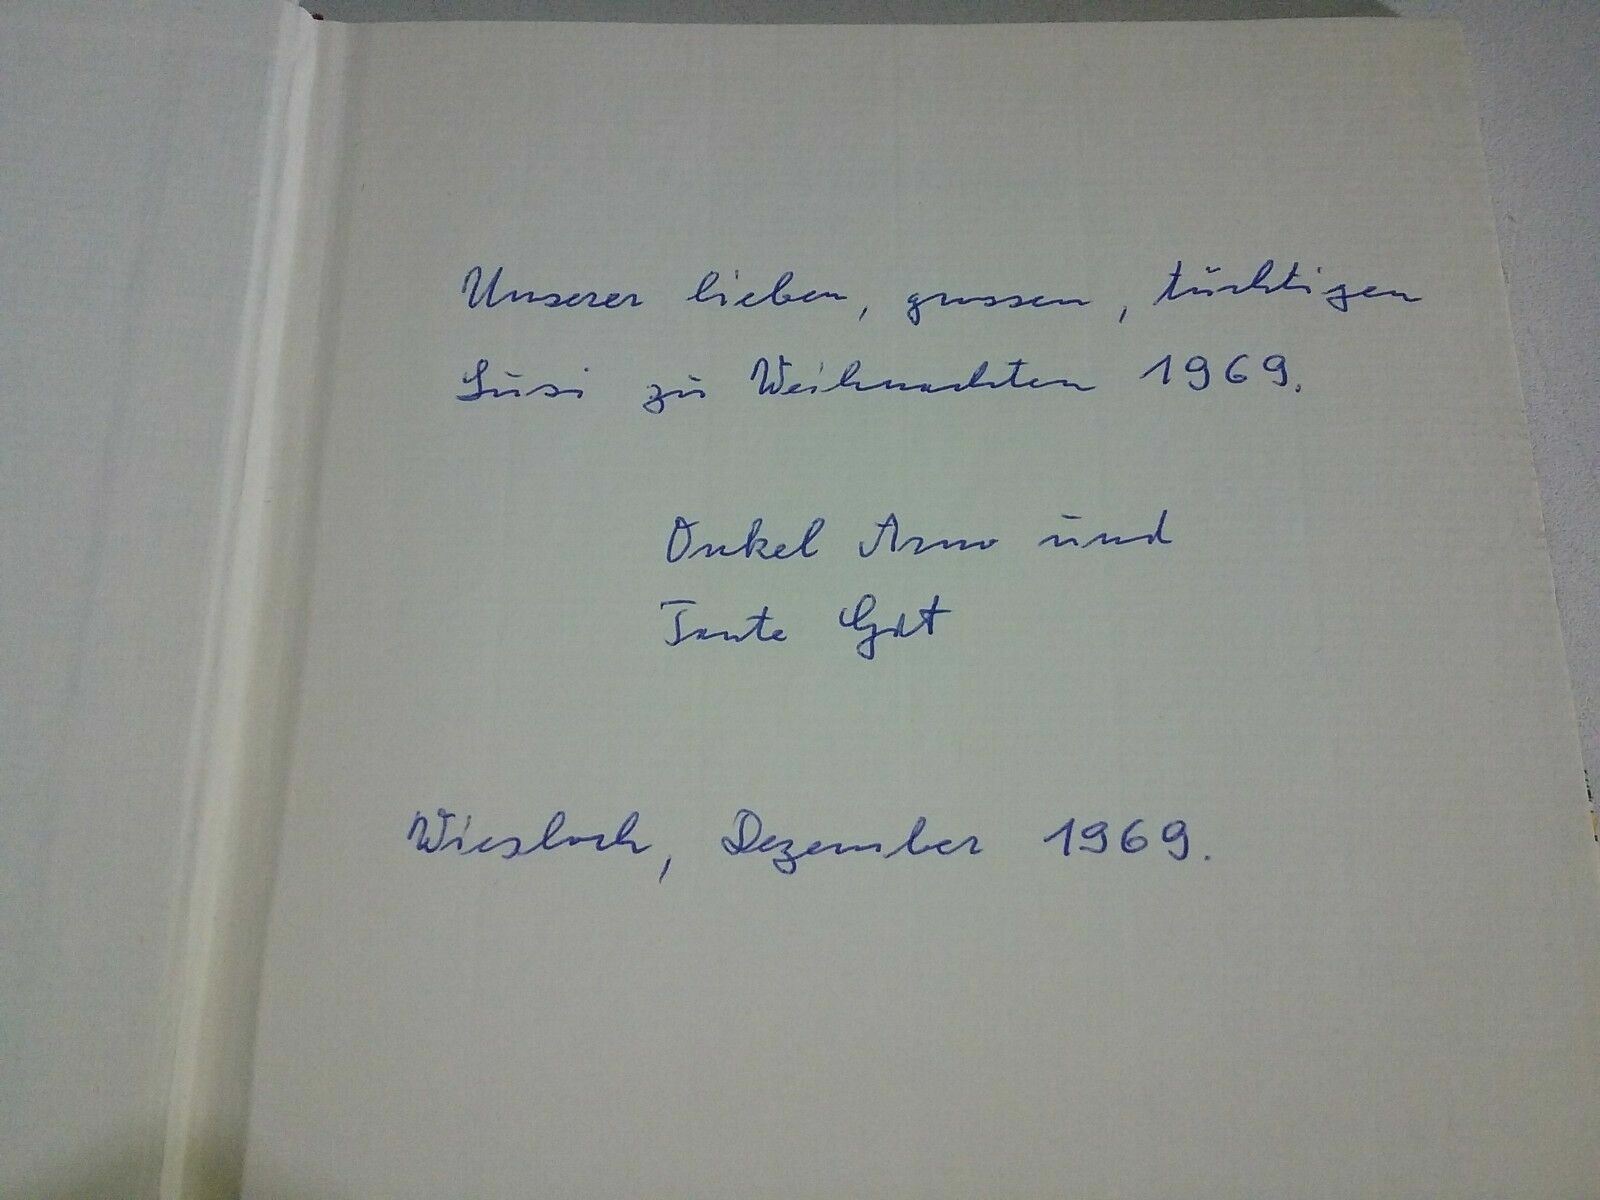 Unserer lieben, grossen, tüchtigen
Susi zu Weihnachten 1969.
Onkel Arno und
Tante
Wiesloch, Dezember 1969.